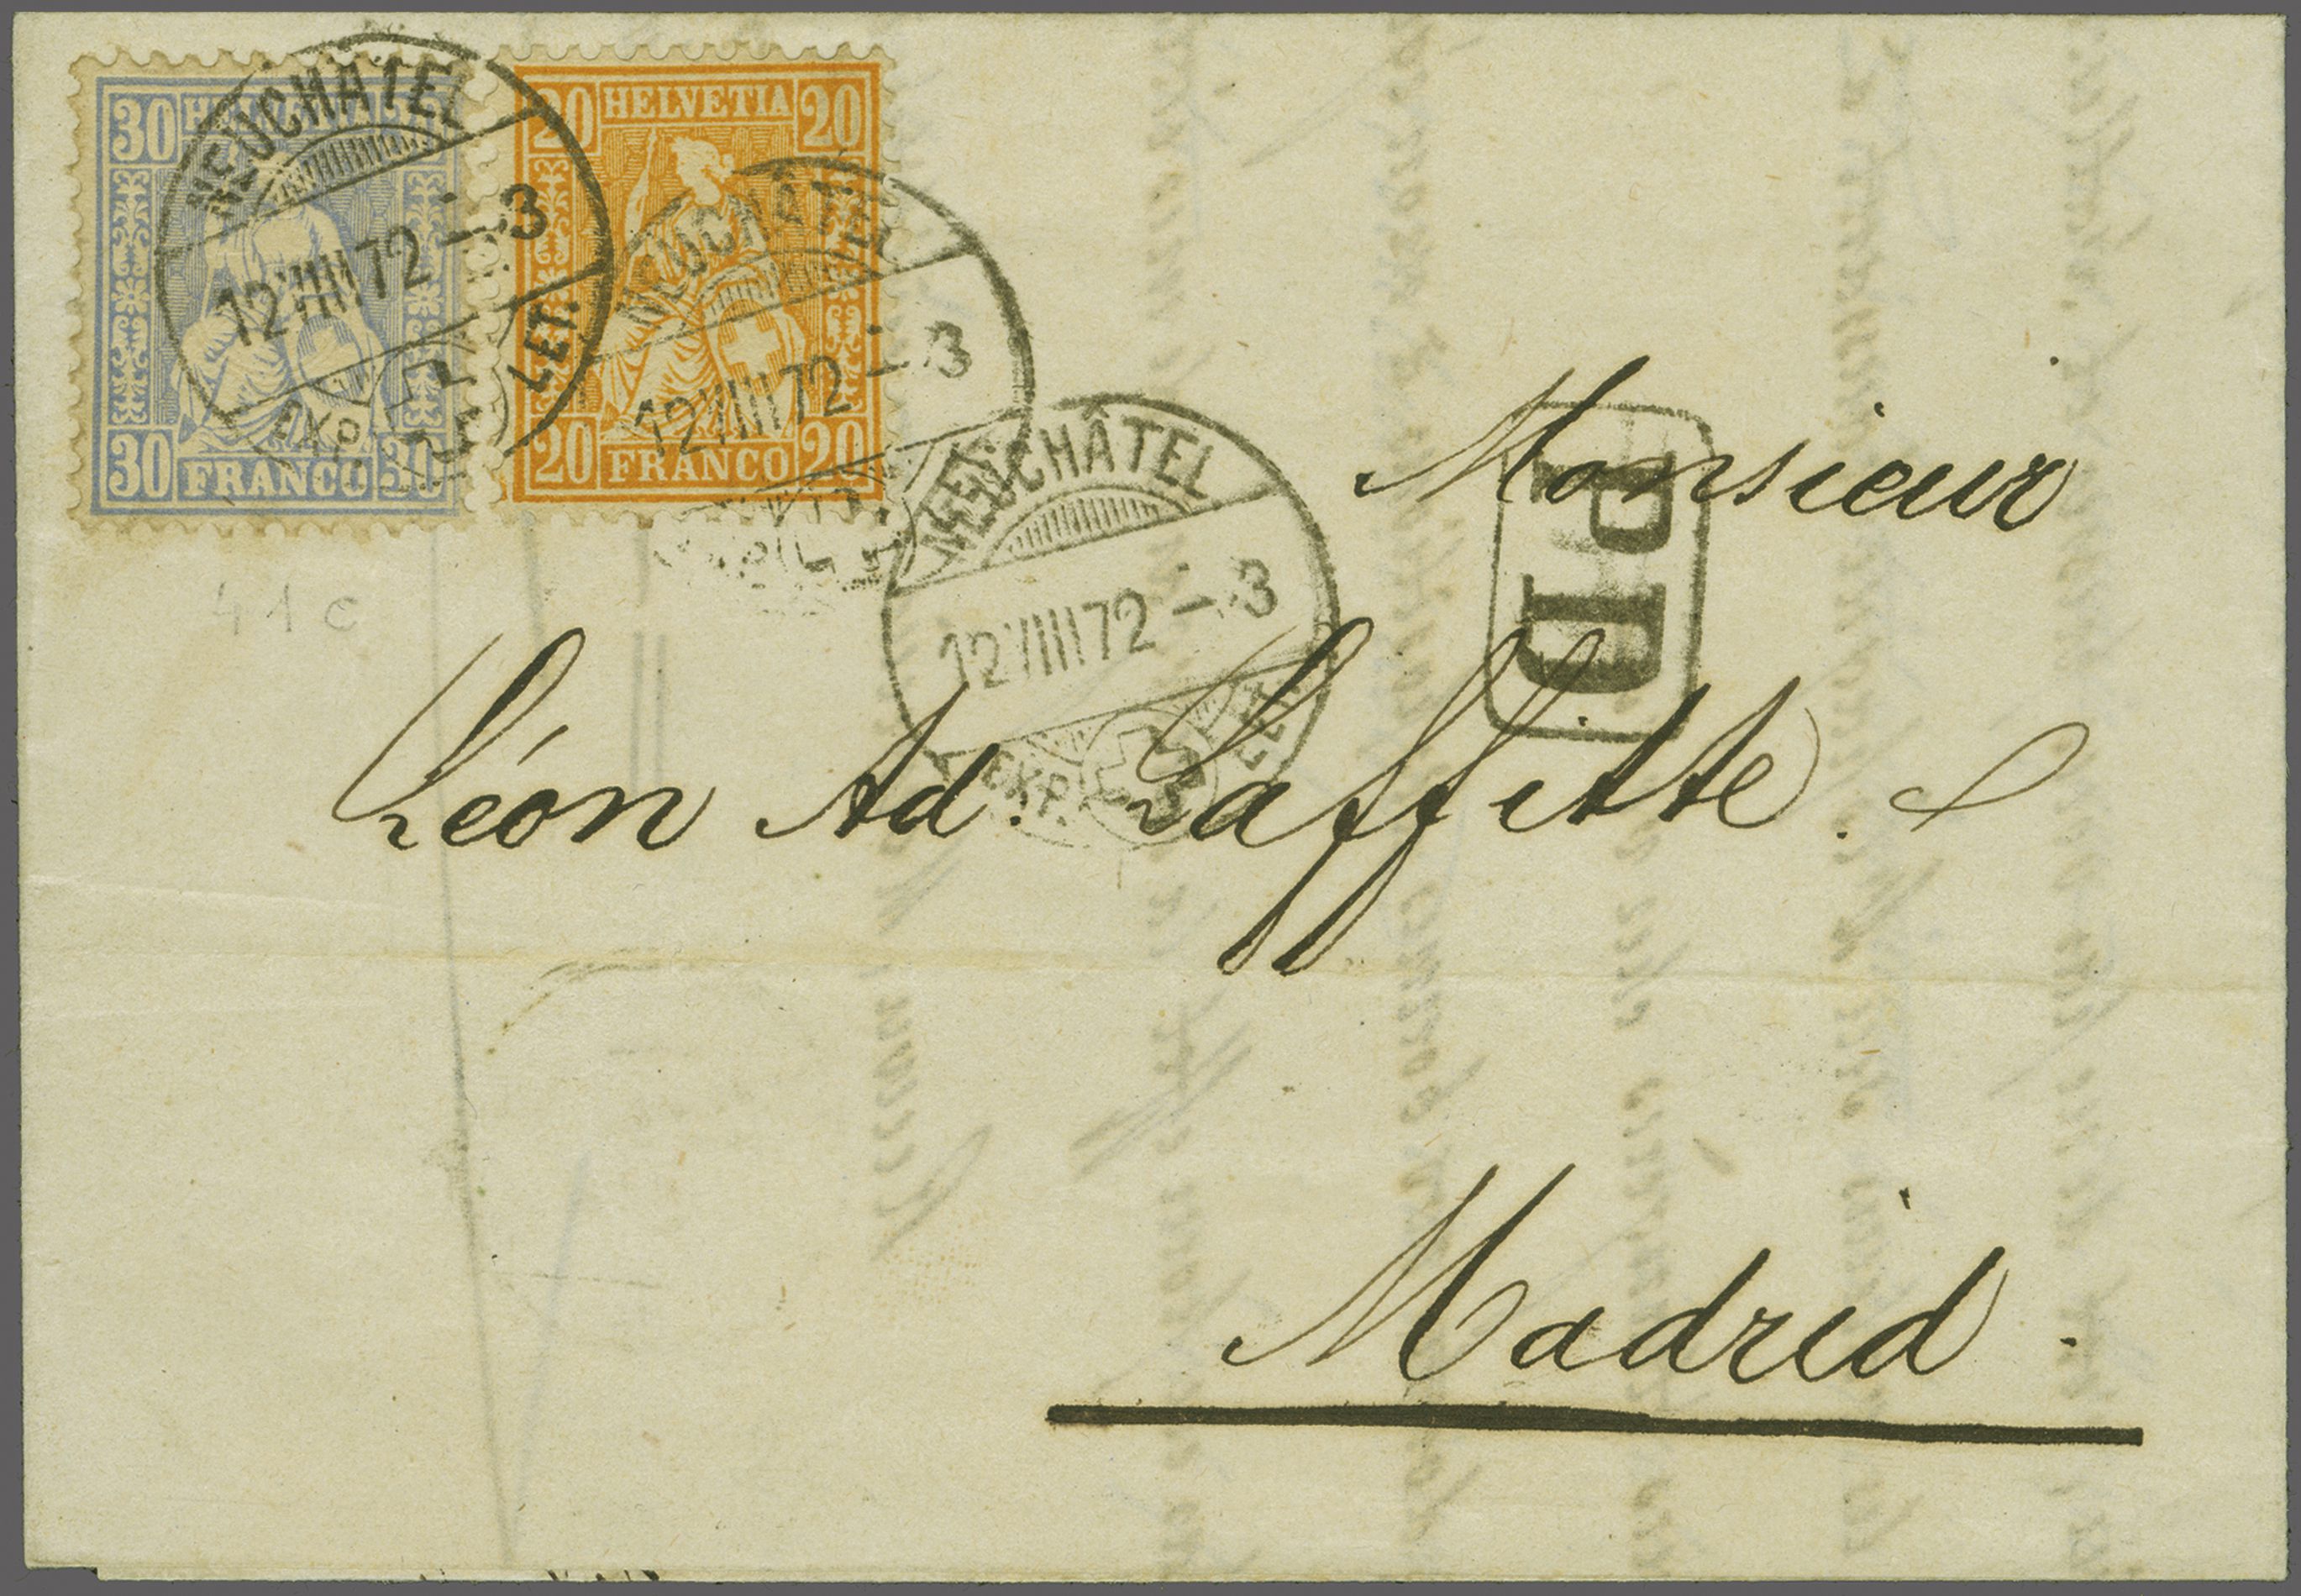 30 HELVETIA 30
30 FRANCO 30
20 HELVETIA 20
20 FRANCO 20
NEUCHÂTEL
12 VIII 72 - 3
EXP. LET.
NEUCHÂTEL
12 VIII 72 - 3
NEUCHÂTEL
12 VIII 72 - 3
EXP. LET.
PD
41 c
Monsieur
Léon Ad. Laffitte.
Madrid.